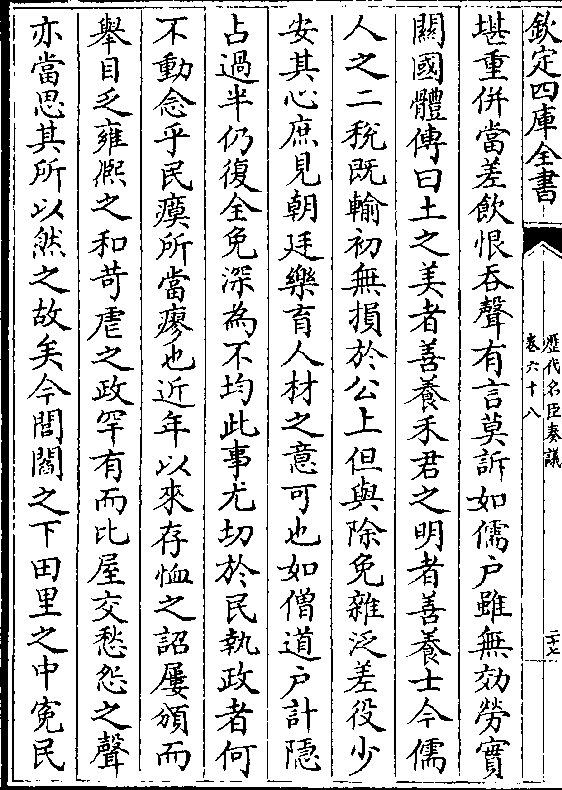 欽定四庫全書
歷代名臣奏議
卷六十八
二十七
堪重併當差飲恨吞聲有言莫訴如儒户雖無効勞實
關國體傳曰土之美者善養禾君之明者善養士今儒
人之二稅既輸初無損於公上但與除免雜泛差役少
安其心庶見朝廷樂育人材之意可也如僧道户計隱
占過半仍復全免深為不均此事尤切於民執政者何
不動念乎民瘼所當瘳也近年以來存恤之詔屢頒而
舉目乏雍熈之和苛虐之政罕有而比屋交愁怨之聲
亦當思其所以然之故矣今閭閻之下田里之中寃民